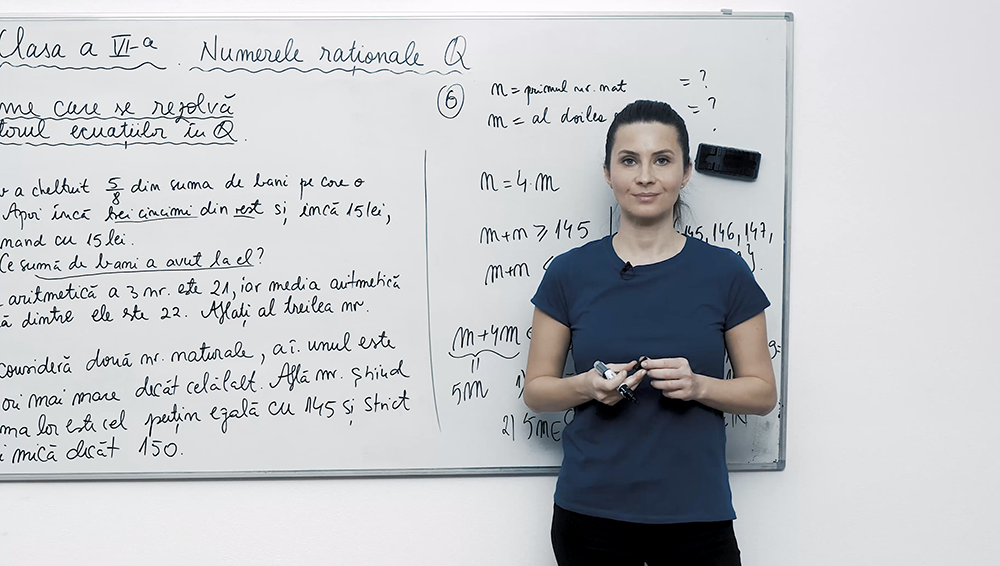 Clasa a VI-a. Numerele raționale Q
me care se rezolvă
torul ecuațiilor în Q.
a cheltuit 5/8 din suma de bani pe care o
Apoi încă trei cincimi din rest și încă 15 lei,
mând cu 15 lei.
Ce sumă de bani a avut la el?
aritmetică a 3 nr. este 21, iar media aritmetică
ă dintre ele este 22. Aflați al treilea nr.
consideră două nr. naturale, a.î. unul este
ori mai mare decât celălalt. Află nr. știind
ma lor esti cel puțin egală cu 145 și strict
i mică decât 150.
6
n = primul nr. nat = ?
m = al doilea = ?
n = 4·m
m+n ≥ 145 145, 146, 147,
m+n <
m+4m
5m 1)
2) 5m ∈